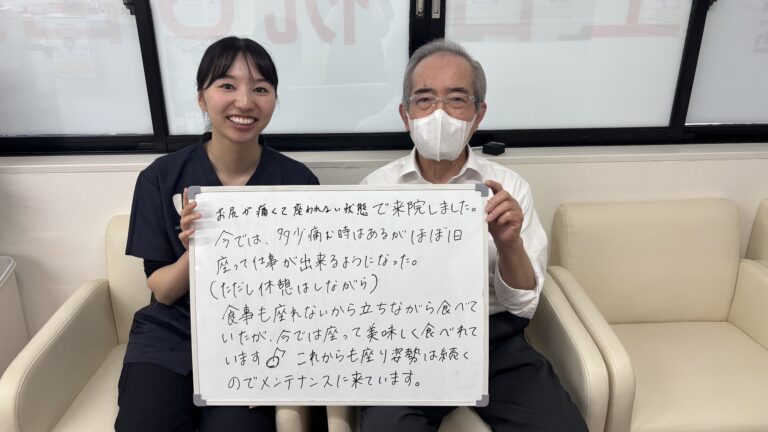 お尻が痛くて座われない状態で来院しました。
今では、多少痛む時はあるがほぼ1日
座って仕事が出来るようになった。
(ただし休憩はしながら)
食事も座れないから立ちながら食べて
いたが、今では座って美味しく食べれて
います♪ これからも座り姿勢は続く
のでメンテナンスに来ています。